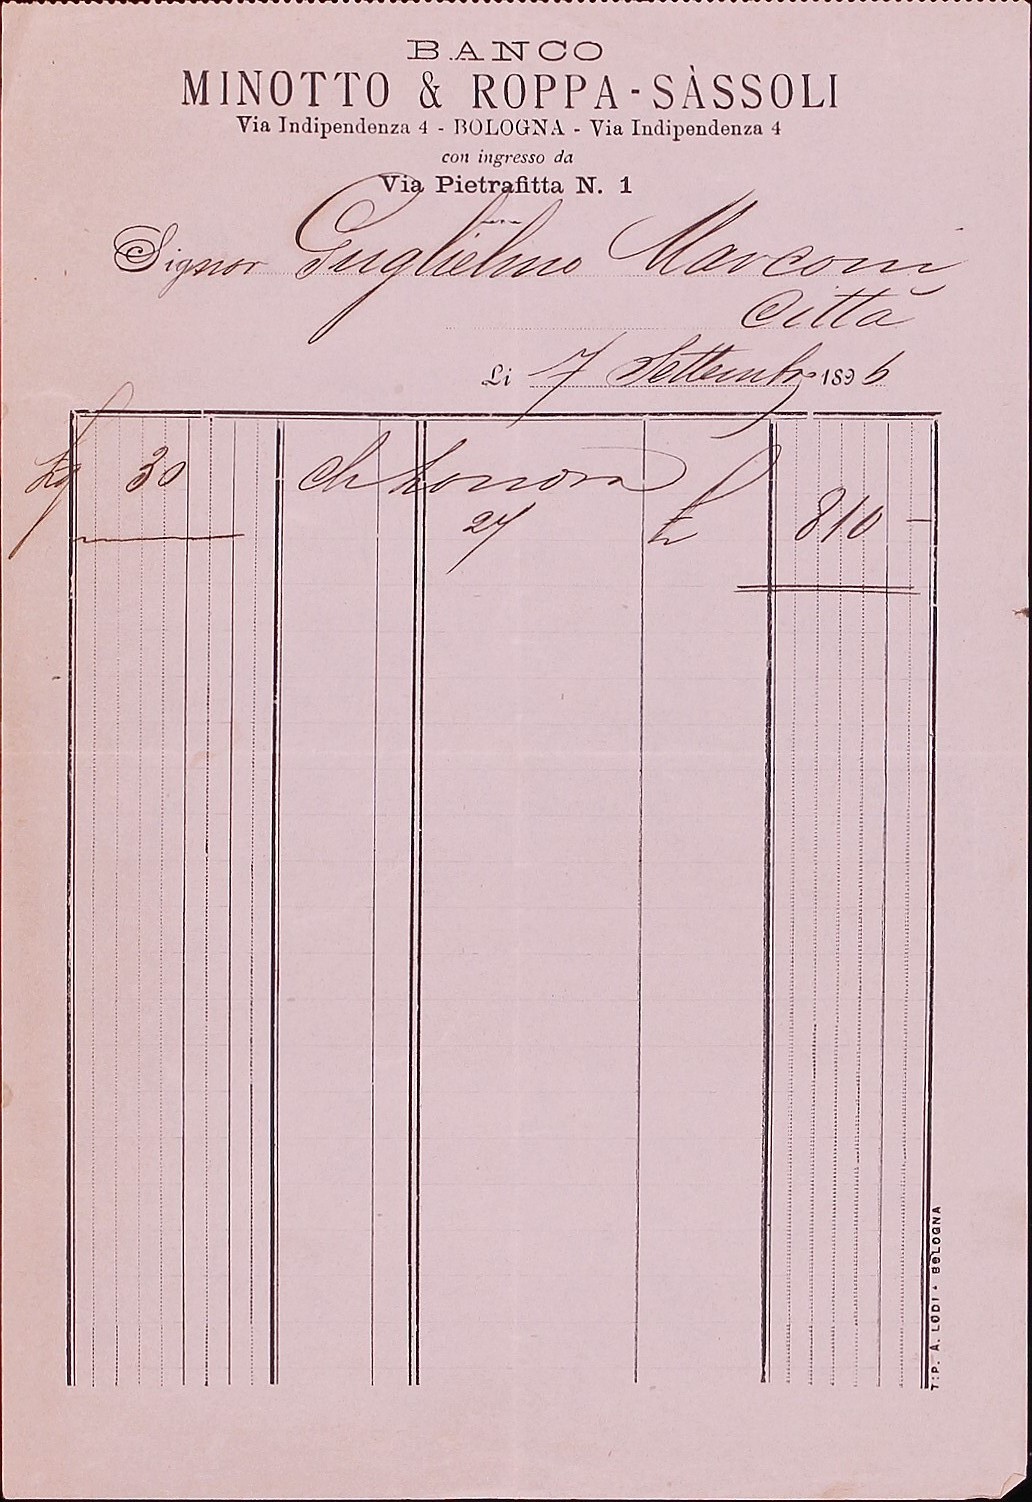 BANCO
MINOTTO & ROPPA-SÀSSOLI
Via Indipendenza 4 - BOLOGNA - Via Indipendenza 4
con ingresso da
Via Pietrafitta N. 1
Signor Guglielmo Marconi
Città
Li 7 Settembre 1896
30
27 £ 810 —
TIP. A. LODI - BOLOGNA